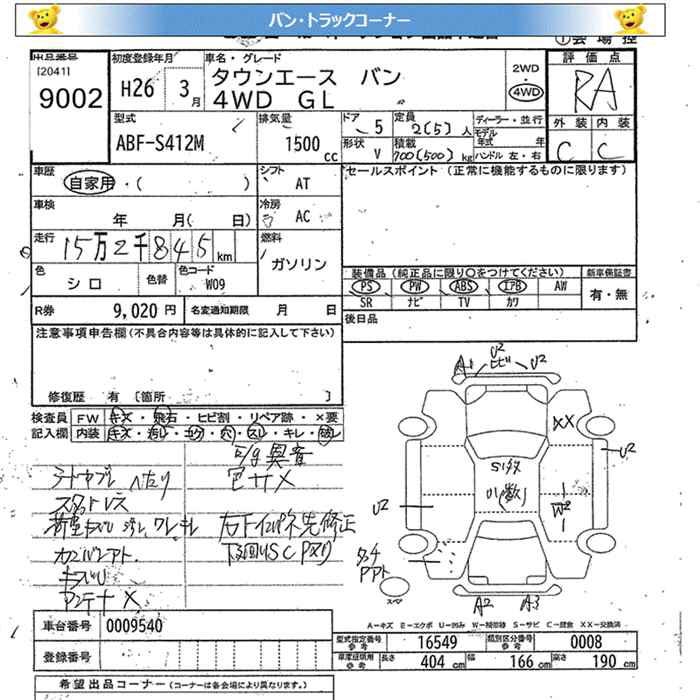 バン・トラックコーナー
①会場控
出品番号
[2041]
9002
初度登録年月
H26 3月
車名・グレード
タウンエース バン
4WD GL
2WD
4WD
評価点
RA
外装 内装
C C
型式
ABF-S412M
排気量
1500
cc
ドア 5
形状 V
定員 2(5)人
積載 700(500)kg
ディーラー・並行
モデル年式 年
ハンドル 左・右
車歴
自家用・( )
シフト
AT
車検
年 月( 日)
冷房
AC
走行
15万2千845km
燃料
ガソリン
色
シロ
色替
色コード
W09
R券 9,020円
名変通知期限 月 日
セールスポイント (正常に機能するものに限ります)
装備品 (純正品に限り○をつけてください)
新車保証書
PS PW ABS エアB AW
SR ナビ TV カワ
有・無
後日品
注意事項申告欄(不具合内容等は具体的に記入して下さい)
修復歴 有 [箇所 ]
検査員
記入欄
FW キズ・飛石・ヒビ割・リペア跡・×要
内装 キズ・汚レ・コゲ・穴・スレ・キレ・破レ
E/g異音
色サメ
シートヤブレ ヘタリ
スタットレス
荷室キズU 汚レ ワレ キレ
右フインパネ先修正
下廻りSCPヌリ
カンバンアト
キズU
アンテナ×
A1 U2 ヒビ U2
XX
U2
Sルーフ
U1(数)
U2
W2
タッチ
アト
スペア
A2 A3
A-キズ E-エクボ U-凹み W-補修跡 S-サビ C-腐食 XX-交換済
車台番号 0009540
登録番号
型式指定番号
参考
16549
類別区分番号
参考
0008
車庫証明用
参考
長さ 404 cm
幅 166 cm
高さ 190 cm
希望出品コーナー (コーナーは各会場により異なります。)